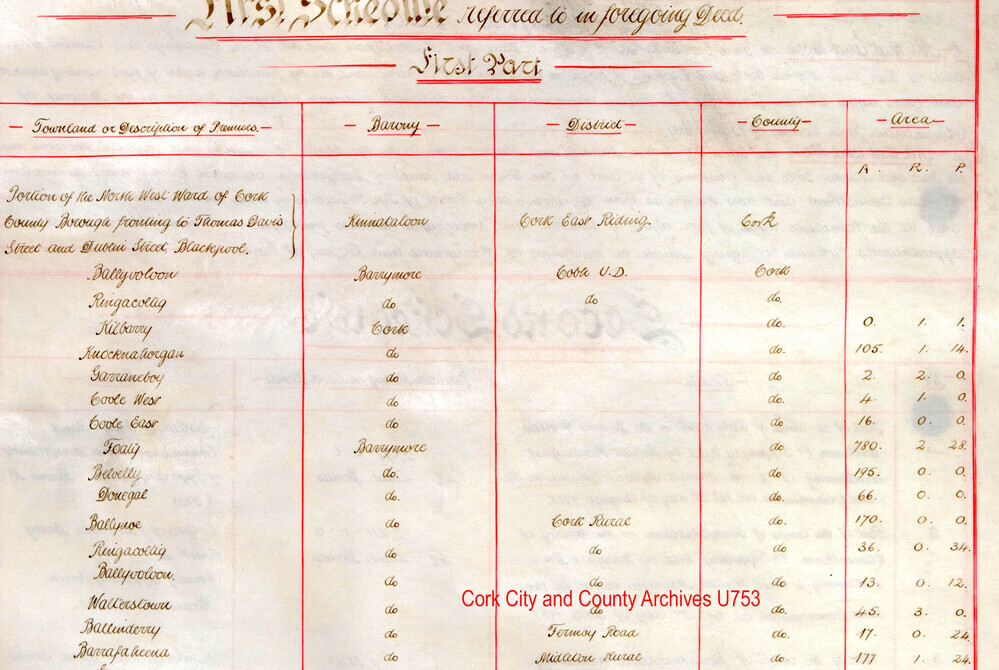 First Schedule referred to in foregoing Deed.
First Part
Townland or Description of Premises. Barony District County Area
A. R. P.
Portion of the North West Ward of Cork
County Borough fronting to Thomas Davis Kinnataloon Cork East Riding. Cork
Street and Dublin Street, Blackpool.
Ballyvoloon Barrymore Cobh U.D. Cork
Ringacollig do do do.
Kilbarry Cork do. 0. 1. 1.
Knocknahorgan do do. 105. 1. 14.
Garraneboy do do 2. 2. 0.
Coole West do do. 4. 1. 0.
Coole East do do 16. 0. 0.
Foaty Barrymore do 780. 2. 28.
Belvelly do. do 195. 0. 0.
Donegal do. do. 66. 0. 0.
Ballynoe do Cork Rural do. 170. 0. 0.
Ringacollig do do do 36. 0. 34.
Ballyvoloon. do do do. 13. 0. 12.
Walterstown do do. 45. 3. 0.
Ballinderry do Fermoy Road do. 17. 0. 24.
Barrafaheena do Midleton Rural do 177 1. 24.
Cork City and County Archives U753